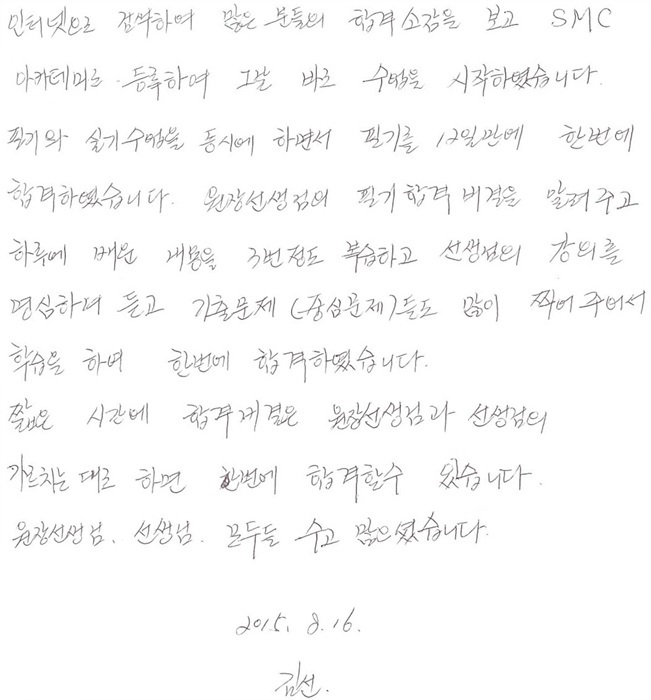 인터넷으로 검색하여 많은 분들의 합격소감을 보고 SMC
아카데미로 등록하여 그날 바로 수업을 시작하였습니다.
필기와 실기수업을 동시에 하면서 필기를 12일만에 한번에
합격하였습니다. 원장선생님의 필기합격비결을 알려주고
하루에 배운 내용을 3번정도 복습하고 선생님의 강의를
명심하며 듣고 기출문제(중심문제)들도 많이 찍어주어서
학습을 하여 한번에 합격하였습니다.
짧은 시간에 합격비결은 원장선생님과 선생님의
가르치는대로 하면 한번에 합격할수 있습니다.
원장선생님. 선생님. 모두들 수고 많으셨습니다.
2015. 8. 16.
김선.